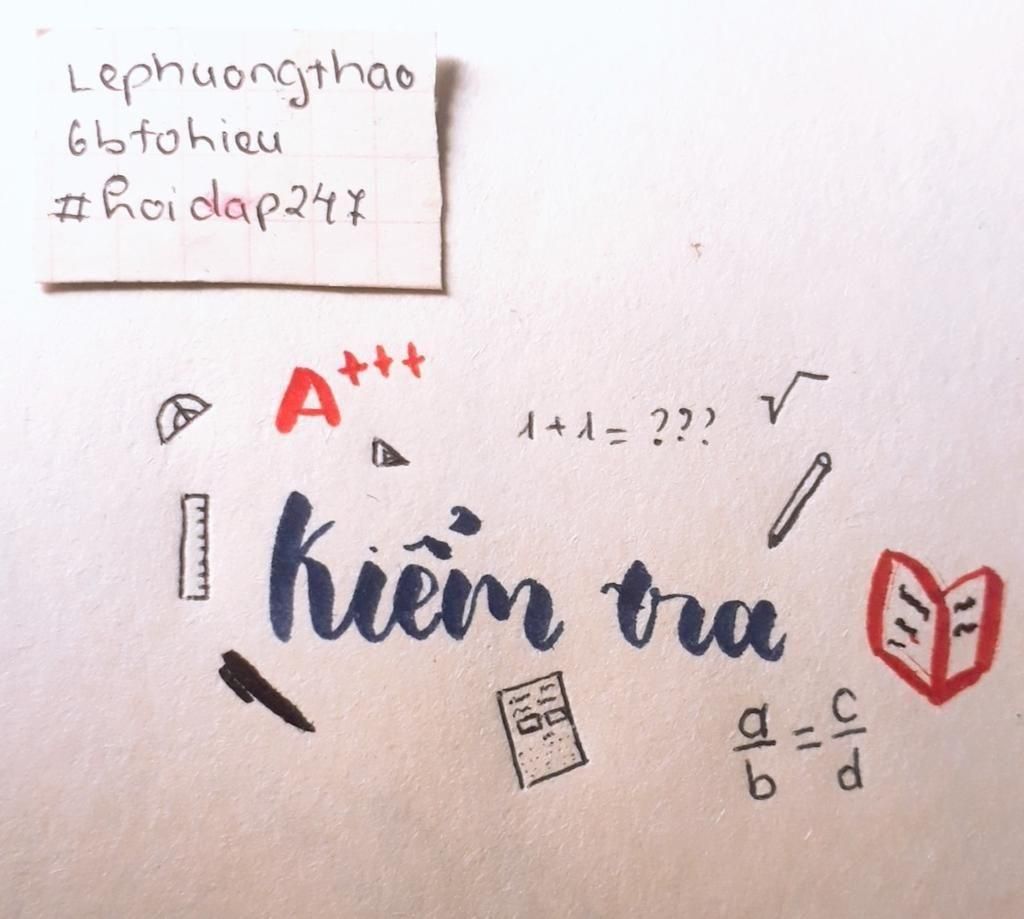 Lephuongthao
6btohieu
#hoidap247
A+++
1+1=???
√
Kiểm tra
a/b = c/d